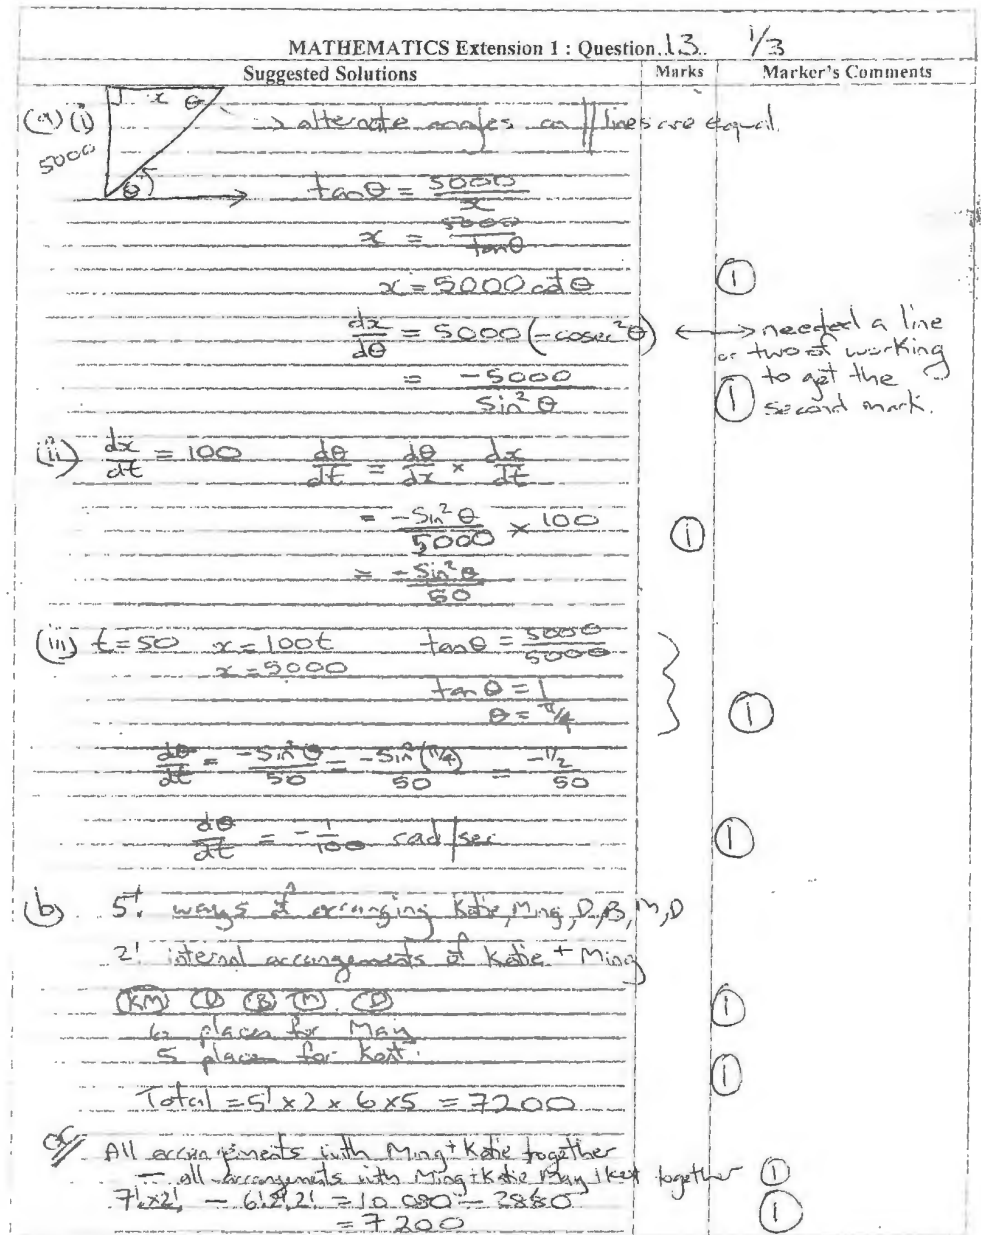 MATHEMATICS Extension 1 : Question 13 1/3
Suggested Solutions Marks Marker's Comments
x θ
(a) (i) → alternate angles on || lines are equal.
5000
θ
tanθ = 5000/x
x = 5000/tanθ
x = 5000 cot θ (1)
dx/dθ = 5000 (-cosec²θ) ↔ needed a line
or two of working
= -5000/sin²θ to get the
(1) second mark.
(ii) dx/dt = 100 dθ/dt = dθ/dx × dx/dt
= -sin²θ/5000 × 100 (1)
= -sin²θ/50
(iii) t=50 x=100t tanθ = 5000/5000
x=5000
tan θ = 1
θ = π/4 (1)
dθ/dt = -sin²θ/50 = -sin²(π/4)/50 = -1/2/50
dθ/dt = -1/100 rad/sec (1)
(b) 5! ways of arranging Katie, Ming, D, B, M, D
2! internal arrangements of Katie + Ming
(KM) (D) (B) (M) (D) (1)
6 places for May
5 places for Kest (1)
Total = 5! × 2 × 6 × 5 = 7200
or All arrangements with Ming + Katie together
- all arrangements with Ming + Katie May Kest together (1)
7! × 2! - 6! 2! 2! = 10 080 - 2880
= 7200 (1)